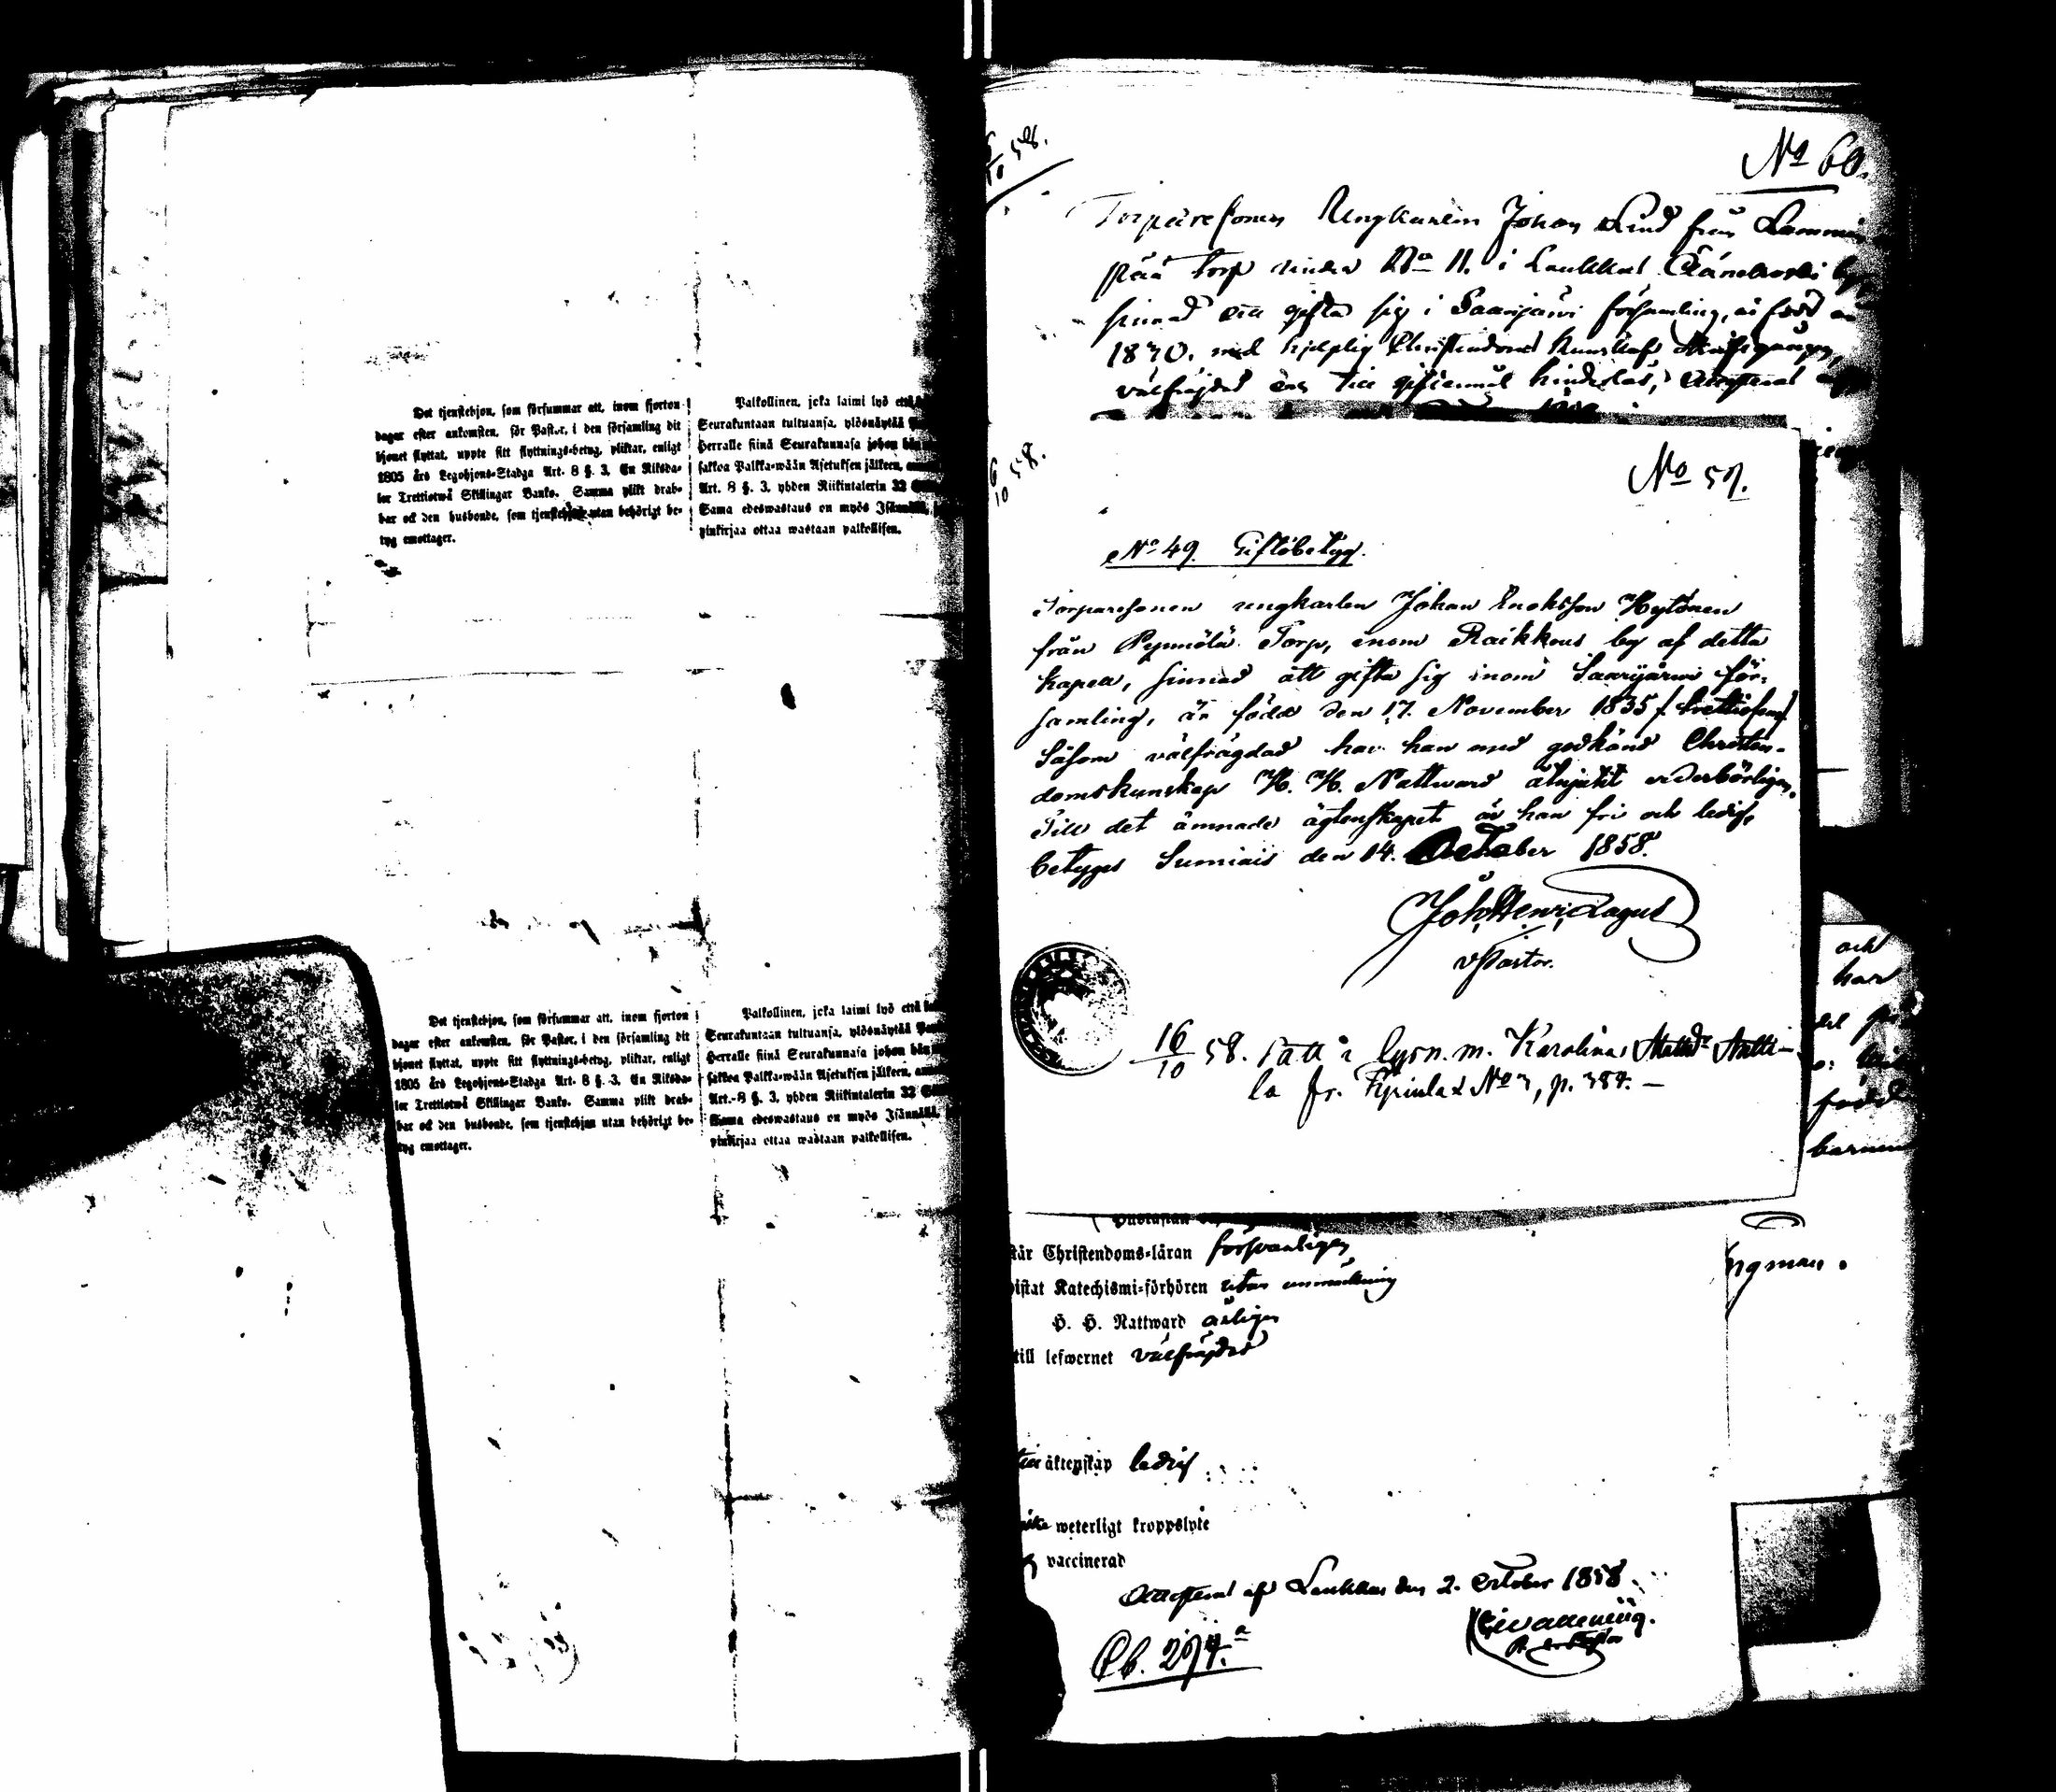 Det tjenstehjon, som försummar att, inom fjorton
dagar efter ankomsten, för Pastor, i den församling dit
hjonet flyttat, uppte sitt flyttnings-betyg, pliktar, enligt
1805 års Legohjons-Stadga Art. 8 §. 3. En Riksda-
ler Trettiotwå Skillingar Banko. Samma plikt drab-
bar ock den husbonde, som tjenstehjon utan behörigt be-
tyg emottager.
Palkollinen, joka laimi lyö että
Seurakuntaan tultuansa, ylösnäytää
Herralle siinä Seurakunnasa johon hän
sakkoa Palkka-wään Asetuksen jälkeen,
Art. 8 §. 3. yhden Riikintalerin 32
Sama edeswastaus on myös Isännällä,
pinkirjaa ottaa wastaan palkollisen.
Det tjenstehjon, som försummar att, inom fjorton
dagar efter ankomsten, för Pastor, i den församling dit
hjonet flyttat, uppte sitt flyttnings-betyg, pliktar, enligt
1805 års Legohjons-Stadga Art. 8 §. 3. En Riksda-
ler Trettiotwå Skillingar Banko. Samma plikt drab-
bar ock den husbonde, som tjenstehjon utan behörigt be-
tyg emottager.
Palkollinen, joka laimi lyö että
Seurakuntaan tultuansa, ylösnäytää
Herralle siinä Seurakunnasa johon hän
sakkoa Palkka-wään Asetuksen jälkeen,
Art. 8 §. 3. yhden Riikintalerin 32
Sama edeswastaus on myös Isännällä,
pinkirjaa ottaa wastaan palkollisen.
10 58.
No 60.
Torparesonen Ungkarlen Johan Lind från
pää torp under No 11. i Laukkas Äänekoski
sinnad att gifta sig i Saarijärvi församling, är född
1830. med hjelplig Christendoms kunskap
välfrejdad och till giftermål hinderlös, Attesteras
6/10 58.
No 59.
No 49. Giftobetyg.
Torparesonen ungkarlen Johan Enoksson Hytönen
från Pynnölä Torp, inom Raikkous by af detta
kapell, sinnad att gifta sig inom Saarijärwi för-
samling, är född den 17. November 1835 f. trettiofem.
Såsom välfrägdad har han med godkänd Christen-
domskunskap H. H. Nattward åtnjutit vederbörligen.
Till det ämnade ägtenskapet är han fri och ledig,
betyges Sumiais den 14. October 1858.
Joh. Henr. Lagus
v Pastor.
16/10 58. Tatt i lysn. m. Karolina
la fr. No 3, p. 384. —
och
har
född
barnen
står Christendoms-läran försvarligen
bistat Katechismi-förhören utan anmärkning
H. H. Nattward årligen
till lefwernet välfrejdad
till äktenskap ledig
weterligt kroppslyte
vaccinerad
Attesteras af Laukkas den 2. October 1858.
Cb. 274.a
ngman.